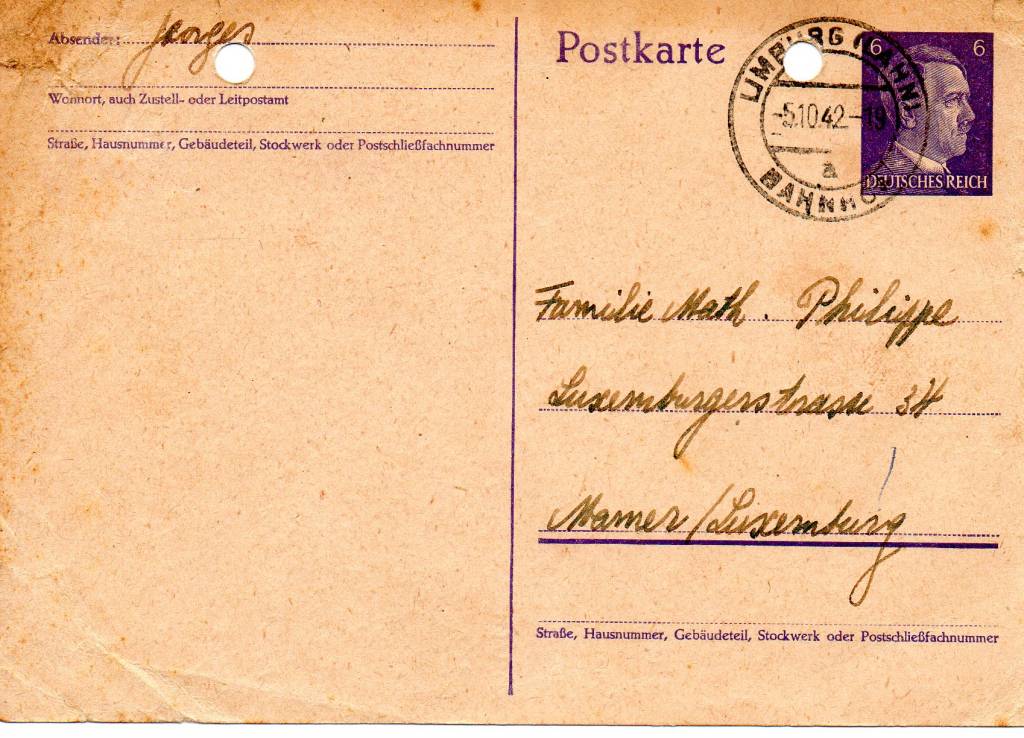 Absender: Georges
Wohnort, auch Zustell- oder Leitpostamt
Straße, Hausnummer, Gebäudeteil, Stockwerk oder Postschließfachnummer
Postkarte
LIMBURG (LAHN)
-5.10.42-19
a
BAHNHOF
6 6
DEUTSCHES REICH
Familie Math. Philippe
Luxemburgerstrasse 34
Mamer/Luxemburg
Straße, Hausnummer, Gebäudeteil, Stockwerk oder Postschließfachnummer